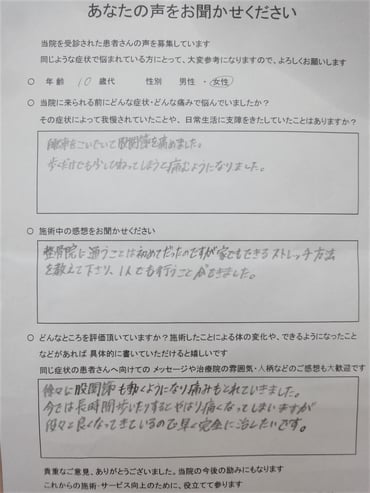 あなたの声をお聞かせください
当院を受診された患者さんの声を募集しています
同じような症状で悩まれている方にとって、大変参考になりますので、よろしくお願いします
○ 年齢 10 歳代 性別 男性・女性
○ 当院に来られる前にどんな症状・どんな痛みで悩んでいましたか?
その症状によって我慢されていたことや、日常生活に支障をきたしていたことはありますか?
自転車をこいでいて股関節を痛めました。
歩くだけでも少しひねってしまうと痛むようになりました。
○ 施術中の感想をお聞かせください
整骨院に通うことは初めてだったのですが家でもできるストレッチ方法
を教えて下さり、1人でも行うことができました。
○ どんなところを評価頂いていますか?施術したことによる体の変化や、できるようになったこと
などがあれば 具体的に書いていただけると嬉しいです
同じ症状の患者さんへ向けての メッセージや治療院の雰囲気・人柄などのご感想も大歓迎です
徐々に股関節も動くようになり痛みもとれていきました。
今では長時間歩いたりするとやはり痛くなってしまいますが
段々と良くなってきているので早く完全に治したいです。
貴重なご意見、ありがとうございました。当院の今後の励みにもなります
これからの施術・サービス向上のために、役立てて参ります